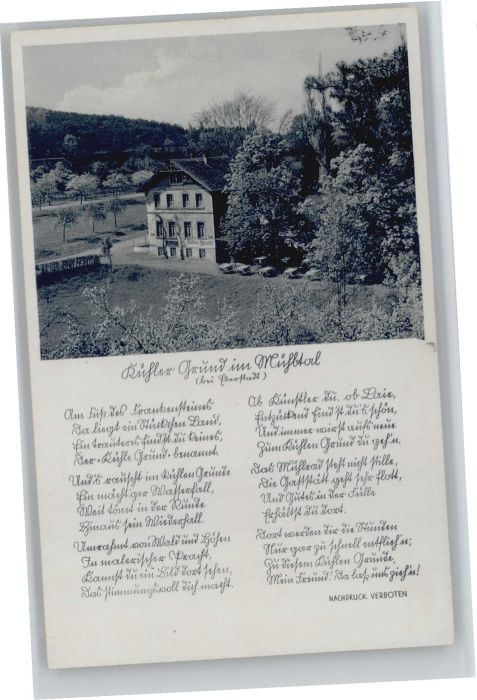 Kühler Grund im Mühltal
(bei Eberstadt)
Am Fuß des Frankensteines
Da liegt ein Stückchen Land,
Ein trauteres findst du keines,
Der „Kühle Grund“ benannt.
Und's rauscht im kühlen Grunde
Ein mächtiger Wasserfall,
Weit tönt in der Runde
Hinaus sein Wiederhall.
Umrahmt von Wald und Höhen
In malerischer Pracht,
Kannst du ein Bild dort sehen,
Das stimmungsvoll dich macht.
Ob Künstler du, ob Laie,
Entzückend find'st du's schön,
Und immer wirst aufs neue
Zum Kühlen Grund du geh'n.
Das Mühlrad steht nicht stille,
Die Gaststätt geht sehr flott,
Und Gutes in der Fülle
Erhältst du dort.
Dort werden dir die Stunden
Nur gar zu schnell entflieh'n;
Zu diesem Kühlen Grunde
Mein Freund! Da laß uns zieh'n!
NACHDRUCK VERBOTEN